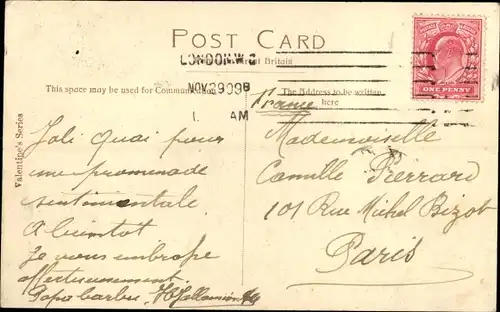 POST CARD
LONDON.W.C
Great Britain
NOV 29 09 B
1. AM
This space may be used for Communication
The Address to be written
here
France
ONE PENNY
Valentine's Series
Joli Quai pour
une promenade
sentimentale
A bientot
Je vous embrasse
affectueusement.
Papa barbu,
Mademoiselle
Camille Pierrard
101 Rue Michel Bizot
Paris